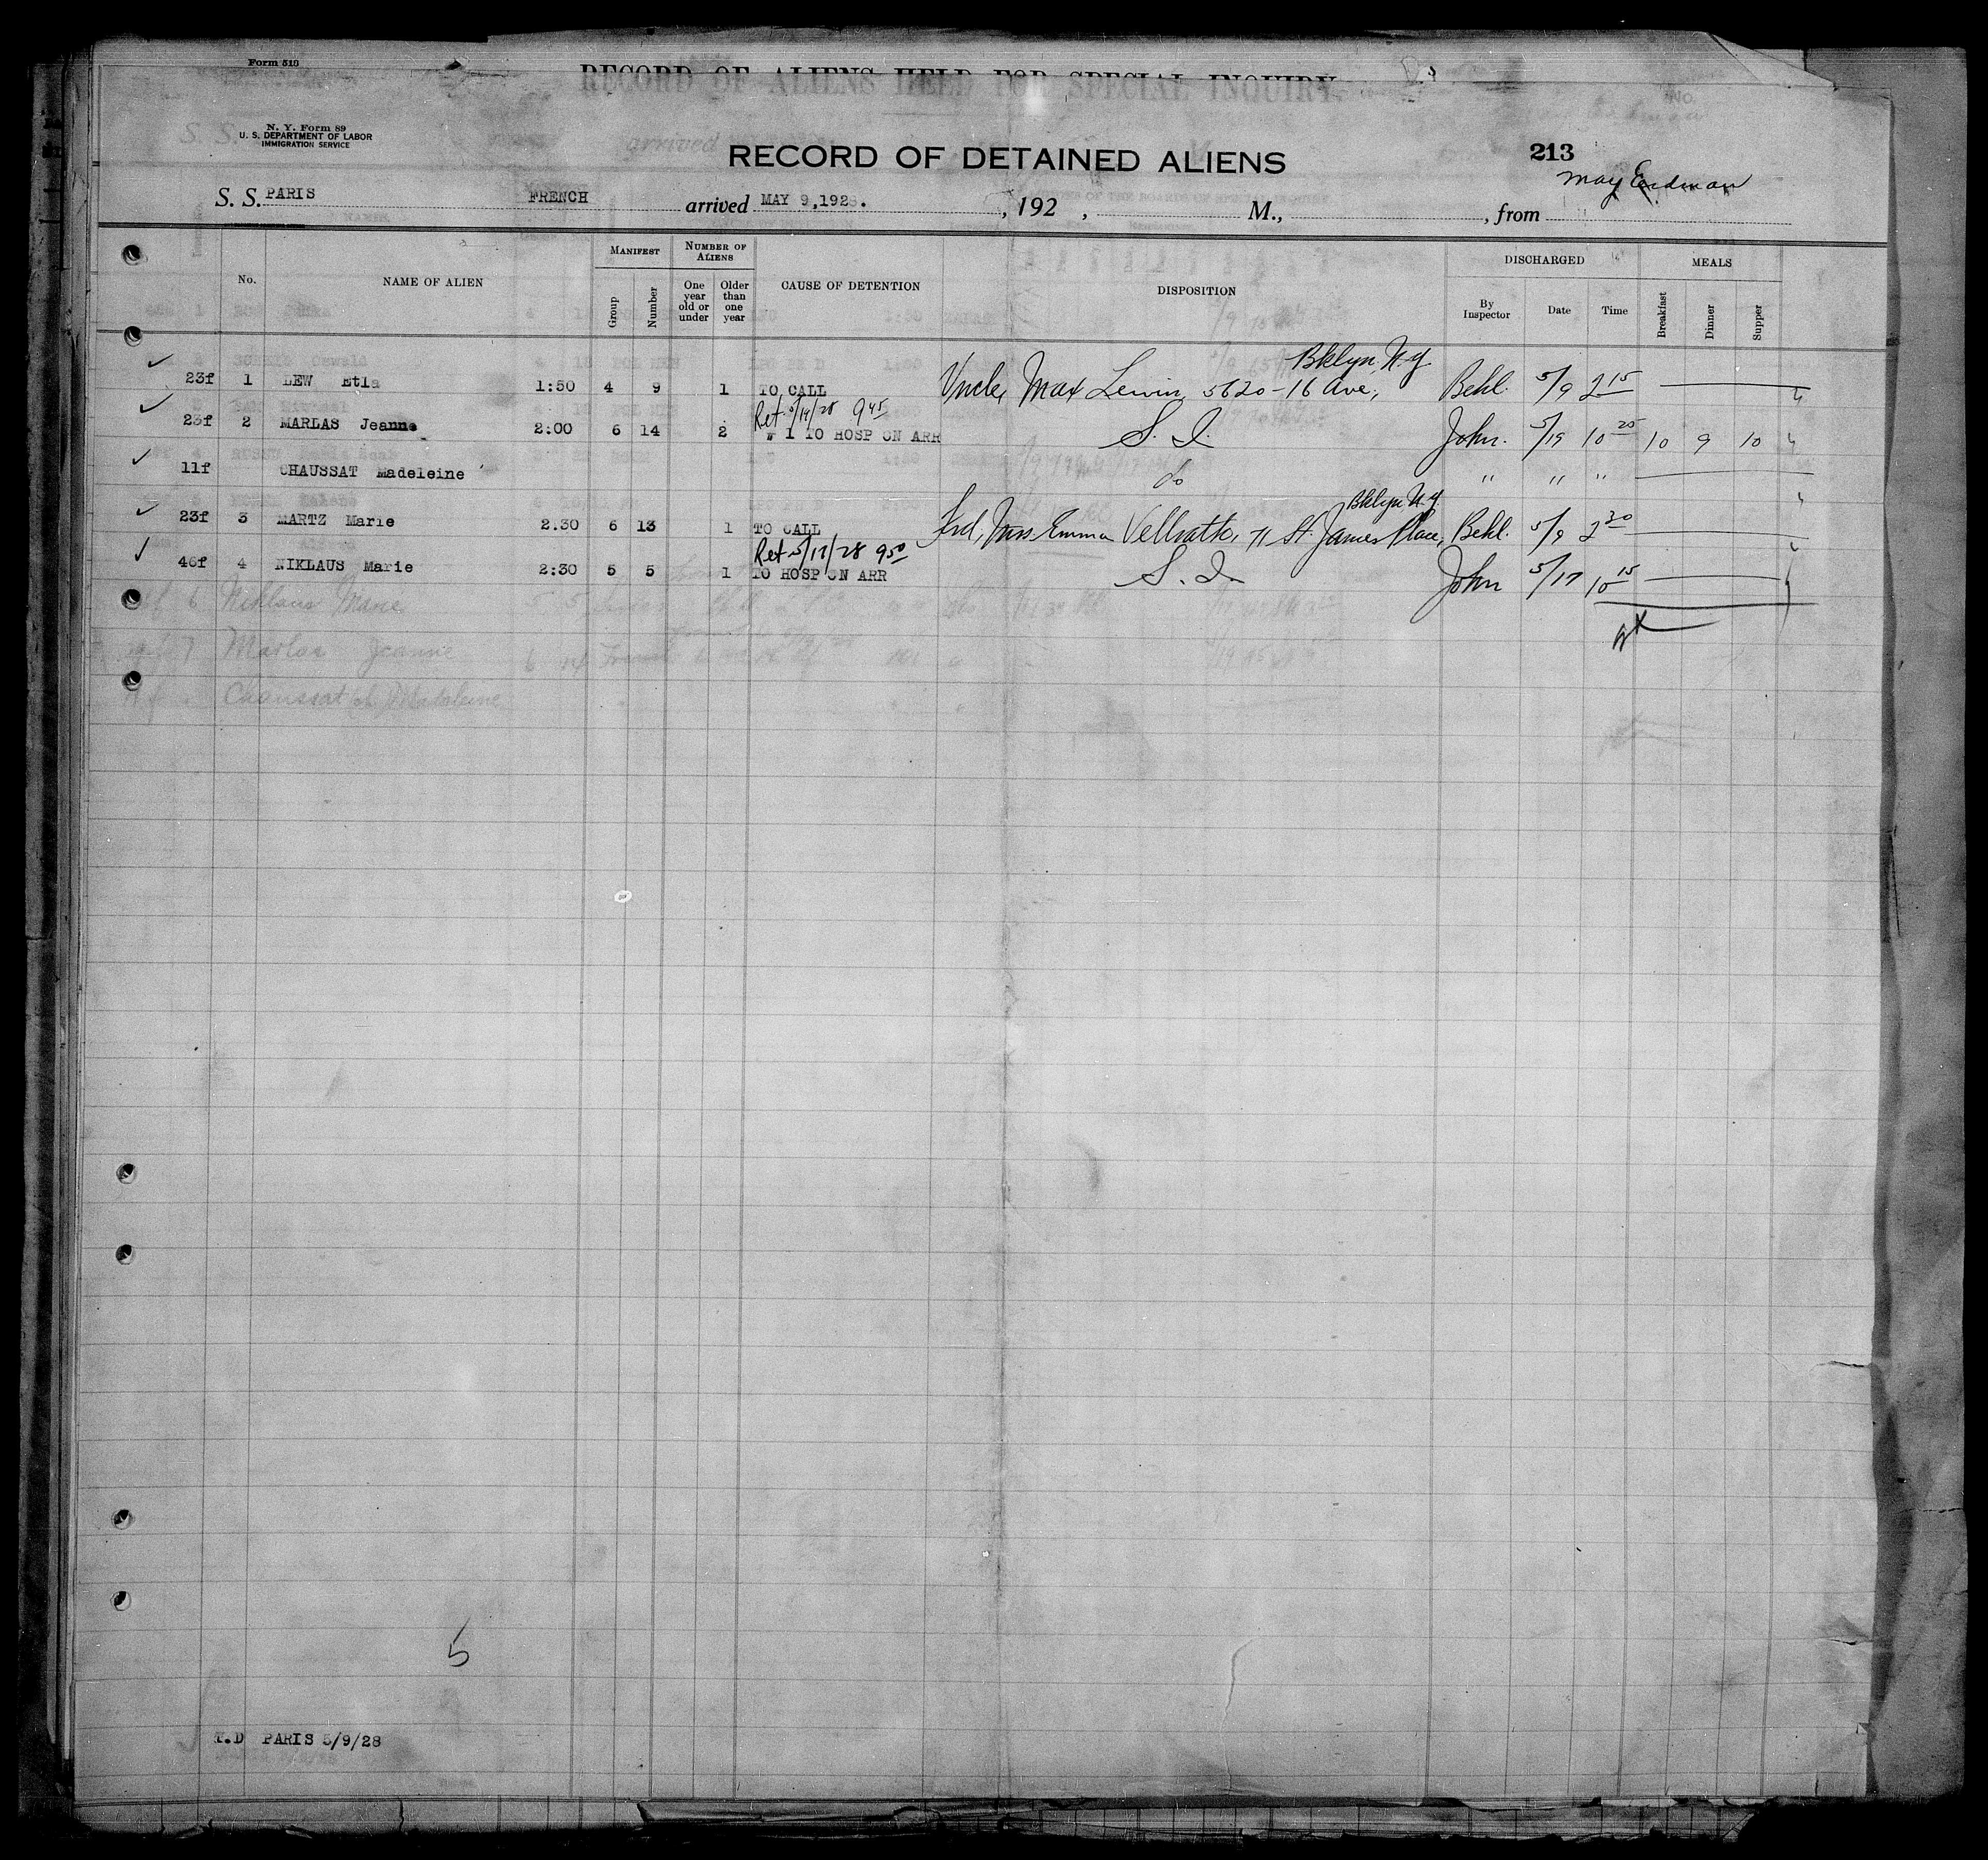 Form 510
RECORD OF ALIENS HELD FOR SPECIAL INQUIRY
N. Y. Form 89
U. S. DEPARTMENT OF LABOR
IMMIGRATION SERVICE
RECORD OF DETAINED ALIENS
213
May Erdman
S. S. PARIS FRENCH arrived MAY 9,1928. , 192 , M., , from
No. NAME OF ALIEN MANIFEST Group Number NUMBER OF ALIENS One year old or under Older than one year CAUSE OF DETENTION DISPOSITION DISCHARGED By Inspector Date Time MEALS Breakfast Dinner Supper
Bklyn, N.Y.
✓ 23f 1 LEW Etla 1:50 4 9 1 TO CALL Uncle, Max Lewin, 5620-16 Ave, Behl. 5/9 2 15
Ret 5/19/28 9 45
✓ 23f 2 MARLAS Jeanne 2:00 6 14 2 # 1 TO HOSP ON ARR S. I. John. 5/19 10 20 10 9 10
✓ 11f CHAUSSAT Madeleine do " " "
Bklyn N.Y.
✓ 23f 3 MARTZ Marie 2.30 6 13 1 TO CALL Frd, Mrs Emma Vellrath, 71 St. James Place, Behl. 5/9 2 30
Ret 5/17/28 9 50
✓ 46f 4 NIKLAUS Marie 2:30 5 5 1 TO HOSP ON ARR S. I. John 5/17 10 15
6 Niklaus Marie 5 5
7 Marlas Jeanne 6 14
Chaussat Madeleine
5
T.D PARIS 5/9/28